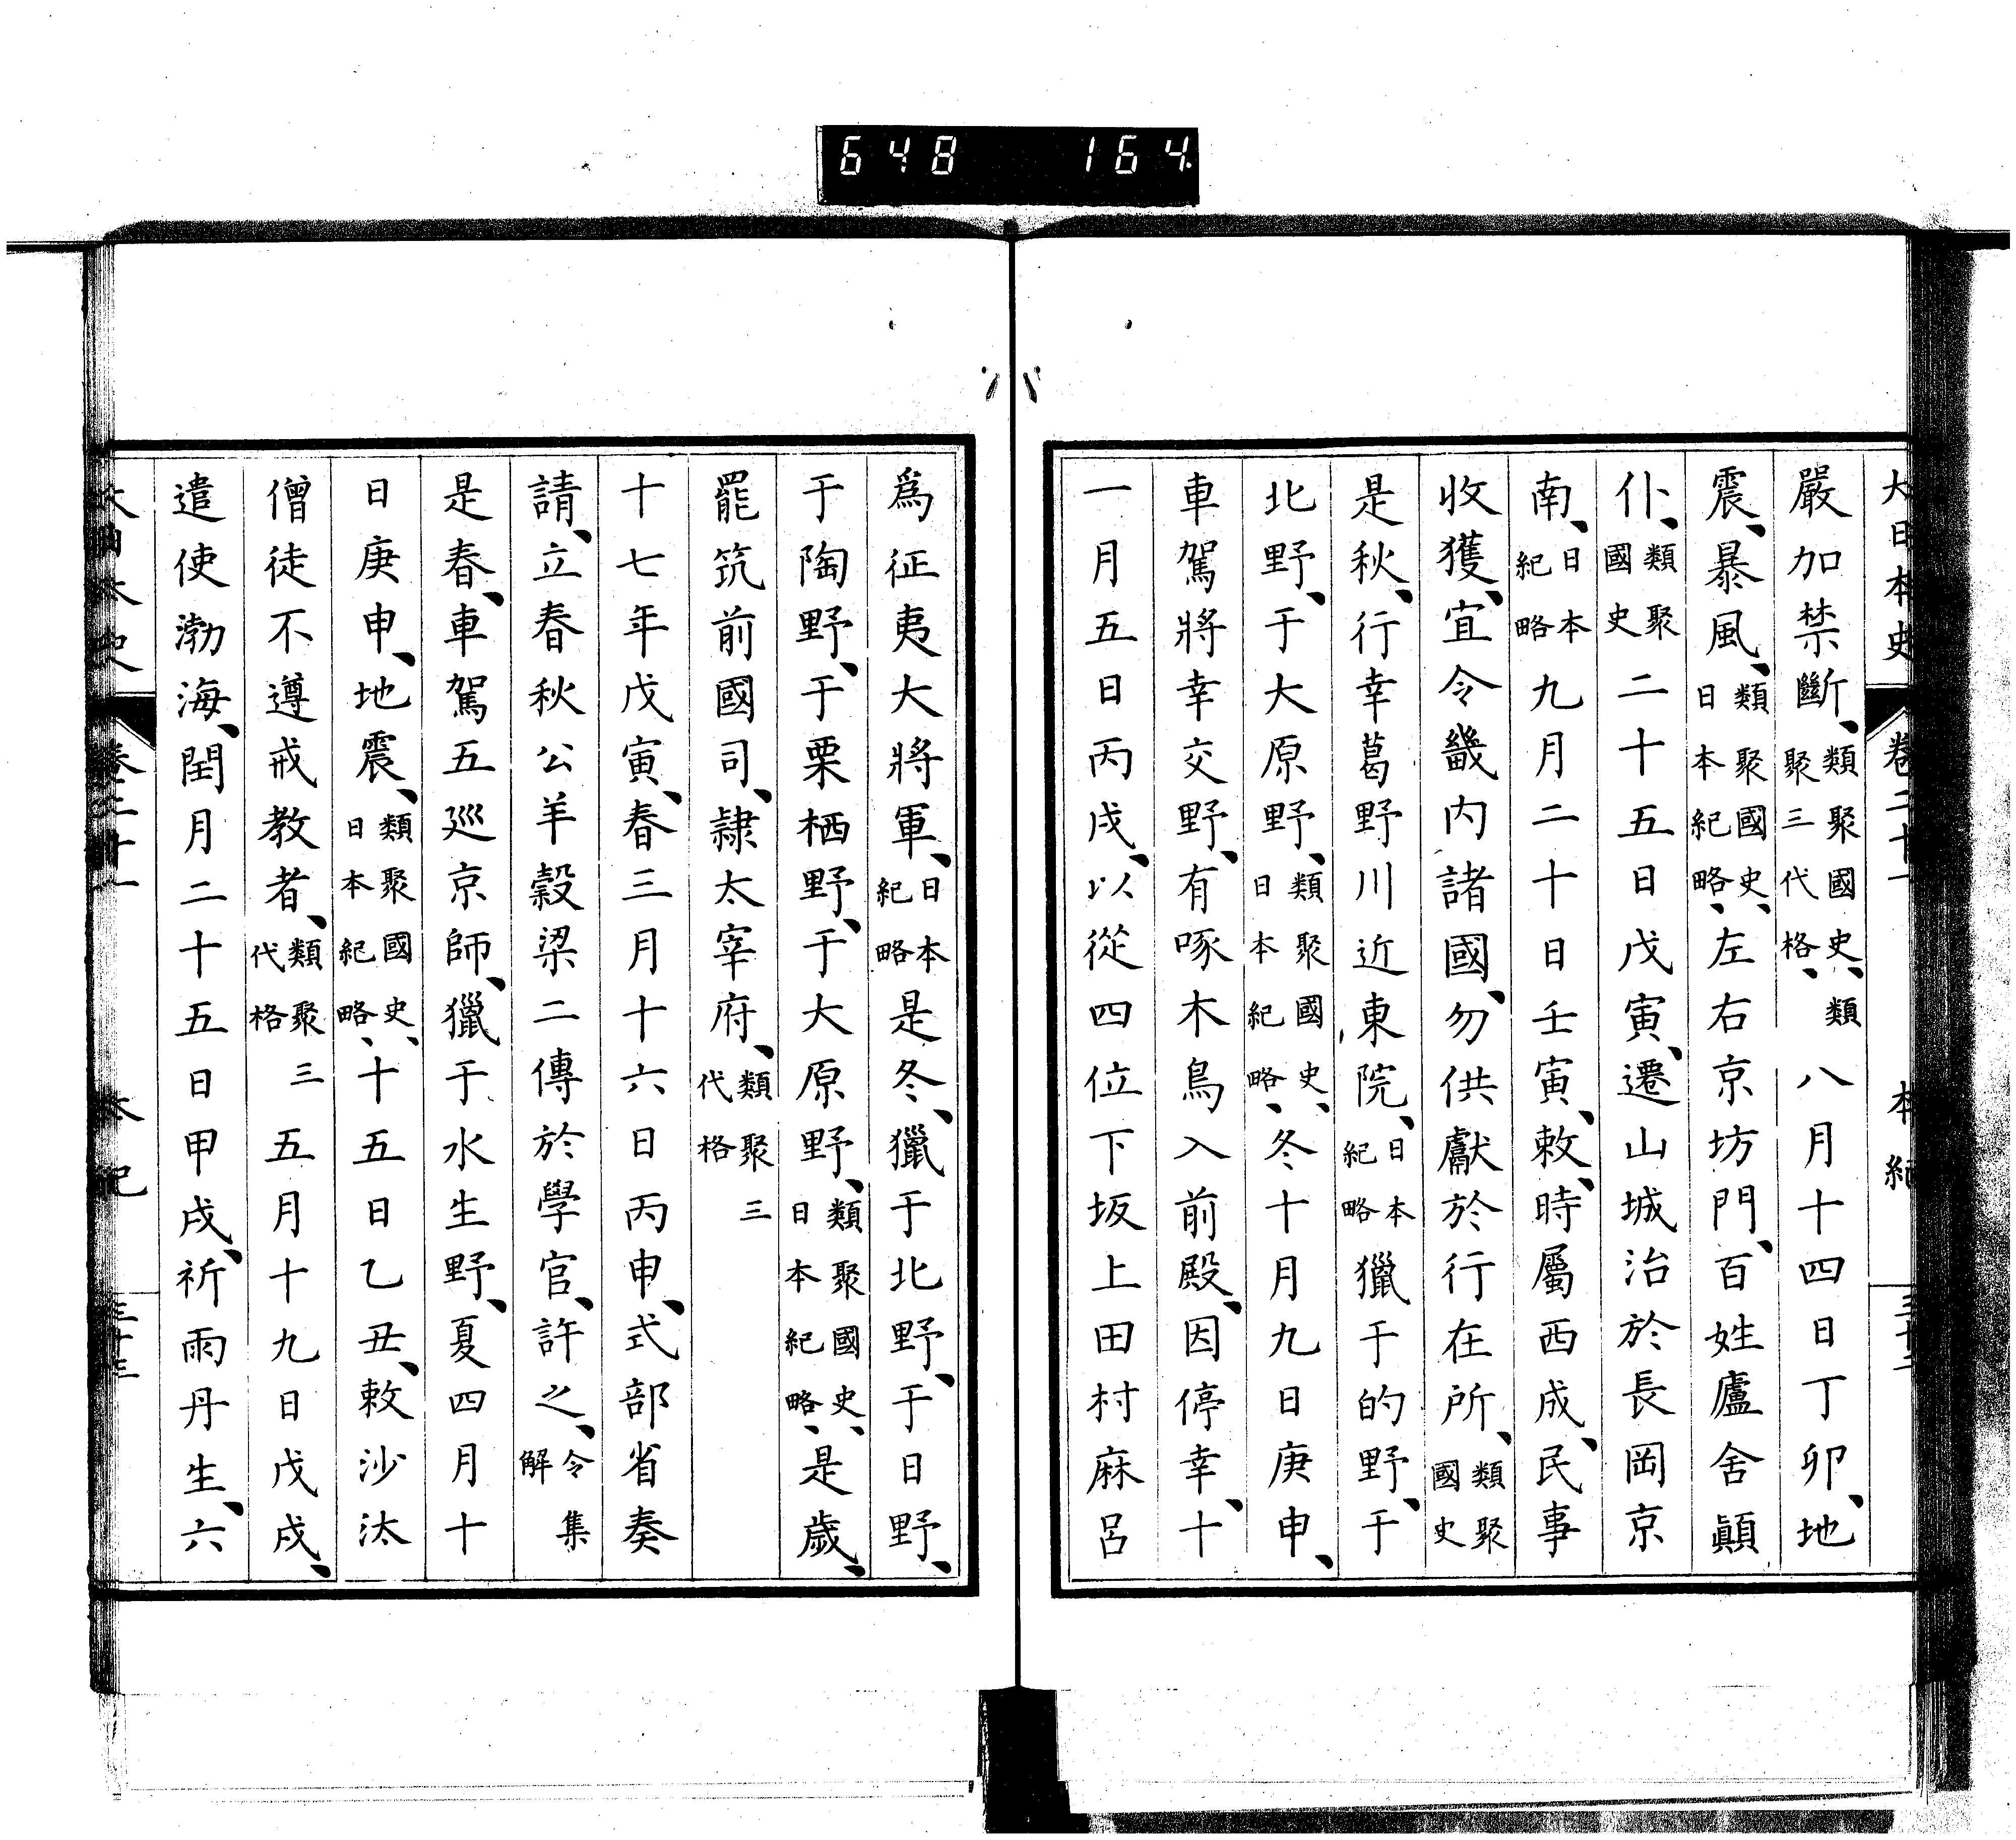 648 164
大日本史 卷二十一 本紀 三十二
嚴加禁斷、類聚國史、類聚三代格、八月十四日丁卯、地
震、暴風、類聚國史、日本紀略、左右京坊門、百姓廬舍顚
仆、類聚國史二十五日戊寅、遷山城治於長岡京
南、日本紀略九月二十日壬寅、敕、時屬西成、民事
收獲、宜令畿内諸國、勿供獻於行在所、類聚國史
是秋、行幸葛野川近東院、日本紀略獵于的野、于
北野、于大原野、類聚國史、日本紀略、冬十月九日庚申、
車駕將幸交野、有啄木鳥入前殿、因停幸、十
一月五日丙戌、以從四位下坂上田村麻呂
爲征夷大將軍、日本紀略是冬、獵于北野、于日野、
于陶野、于栗栖野、于大原野、類聚國史、日本紀略、是歲、
罷筑前國司、隷太宰府、類聚三代格
十七年戊寅、春三月十六日丙申、式部省奏
請、立春秋公羊穀梁二傳於學官、許之、令集解
是春、車駕五巡京師、獵于水生野、夏四月十
日庚申、地震、類聚國史、日本紀略、十五日乙丑、敕沙汰
僧徒不遵戒教者、類聚三代格五月十九日戊戌、
遣使渤海、閏月二十五日甲戌、祈雨丹生、六